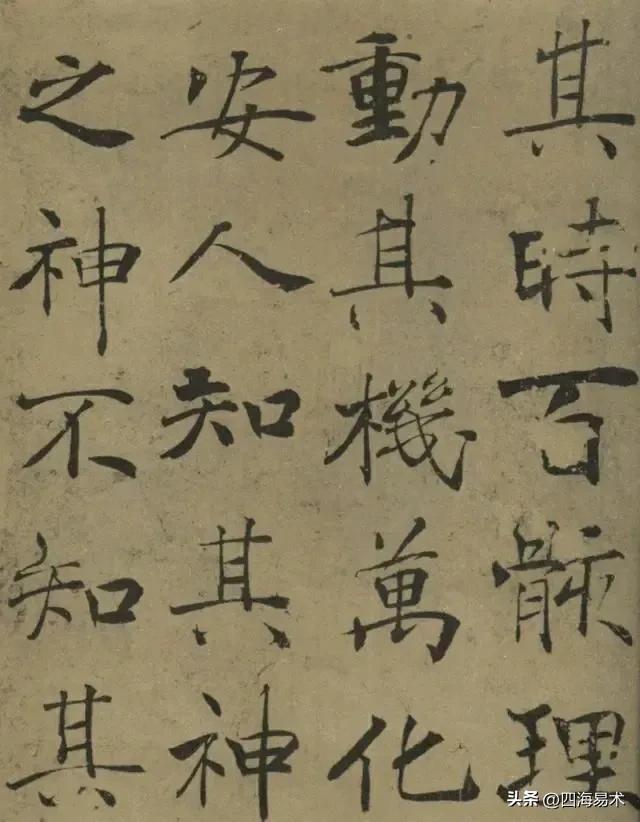 其時百骸理
動其機萬化
安人知其神
之神不知其
头条 @四海易术